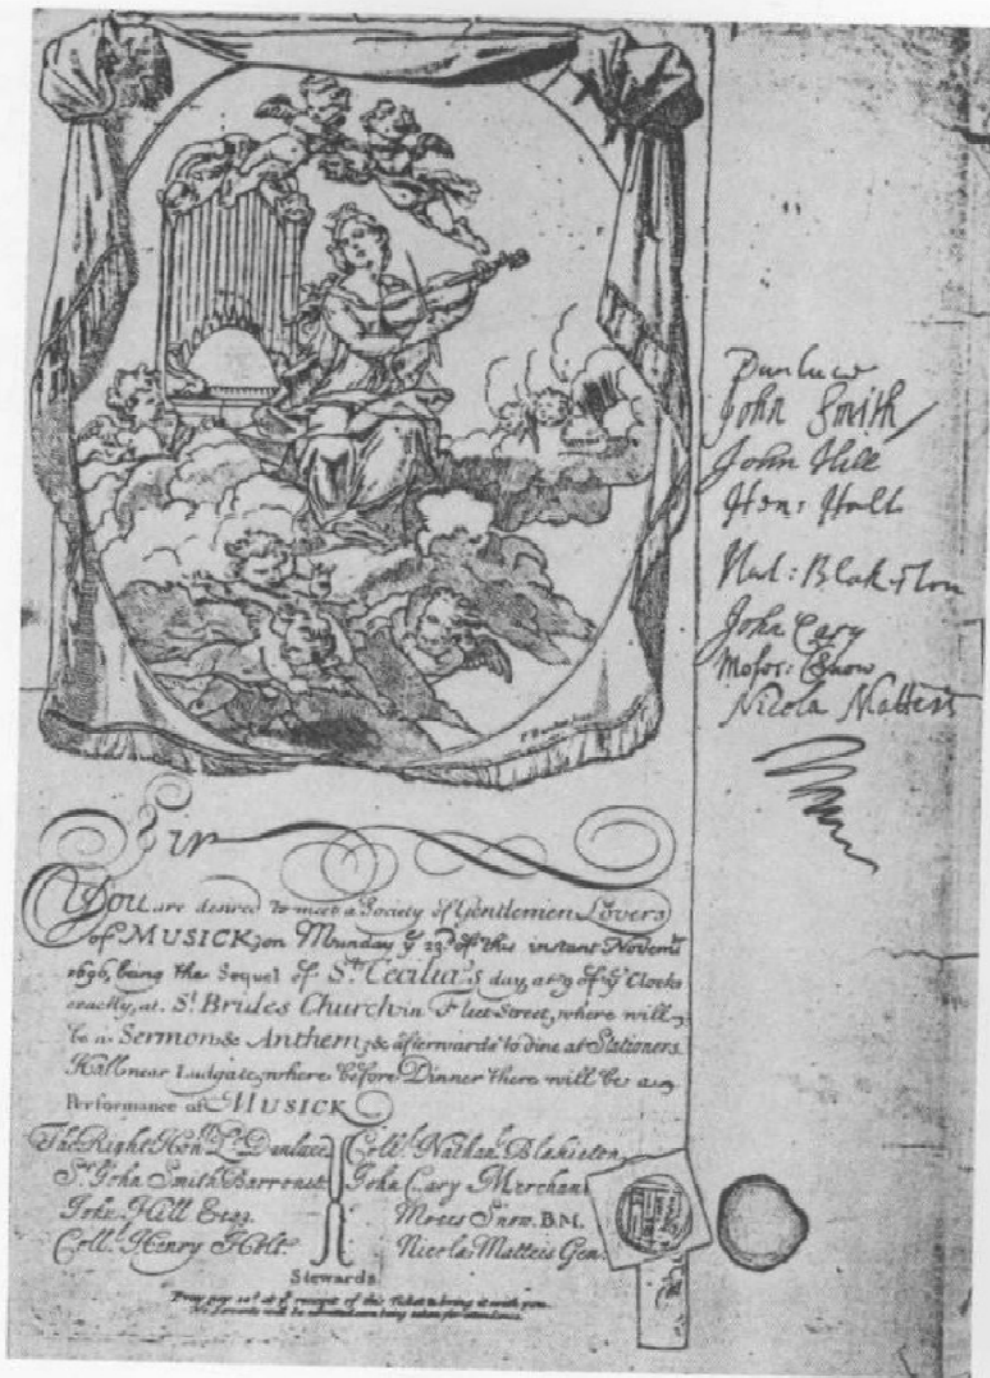 Dunluce
John Smith
John Hill
Hen: Holt
Nat: Blakiston
John Cary
Moses: Snow
Nicola Matteis
Sir
You are desired to meet a Society of Gentlemen Lovers
of MUSICK, on Munday ye 23d of this instant Novemr
1696, being the Sequel of St. Cecilia's day, at 9 of ye Clocke
exactly, at St. Brides Church in Fleet Street, where will
be a Sermon & Anthem, & afterwards to dine at Stationers
Hall near Ludgate, where before Dinner there will be a
Performance of MUSICK
The Right Honble Ld. Dunluce Coll. Nathan. Blakiston
Sr. John Smith Barronet John Cary Merchant
John Hill Esqr. Moses Snow. B.M.
Coll. Henry Holt. Nicola: Matteis Gen.
Stewards
Pray pay 10s at ye receipt of this Ticket & bring it with you.
No servants will be admitted